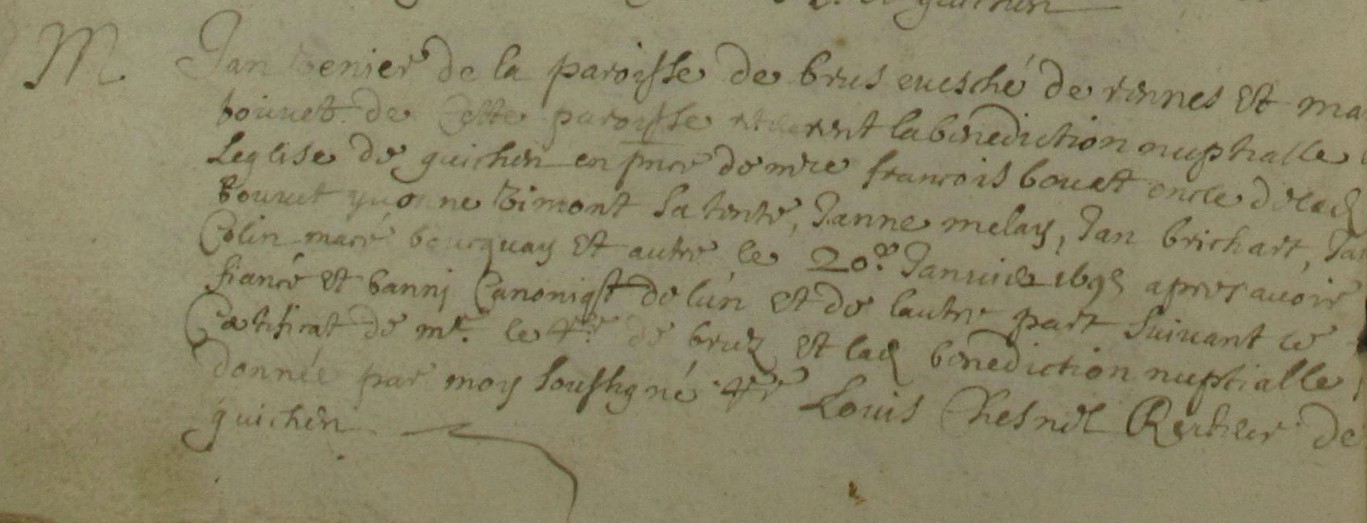 guichen
M Jan de la paroisse de brus evesché de rennes Et ma
bouvet de Cette paroisse la benediction nuptialle
Leglise de guichen en pnce de mre francois bouet oncle de lad
bouvet yvonne Timont sa tente, Janne melay, Jan brichart, Ja
Colin macé beucquay Et autre le 20e Janvier 169 apres avoir
fiancé et banni Canoniqst de lun et de lautre part suivant le
Certificat de mr. le de bruz et lad benediction nuptialle
donnée par moy soussigné Louis Chesnel Recteur de
guichen